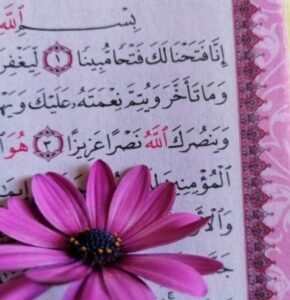 بِسْمِ ٱللَّهِ
إِنَّا فَتَحْنَا لَكَ فَتْحًا مُّبِينًا ۝١ لِّيَغْفِرَ
وَمَا تَأَخَّرَ وَيُتِمَّ نِعْمَتَهُۥ عَلَيْكَ وَيَهْ
وَيَنصُرَكَ ٱللَّهُ نَصْرًا عَزِيزًا ۝٣ هُوَ
ٱلْمُؤْمِنِينَ